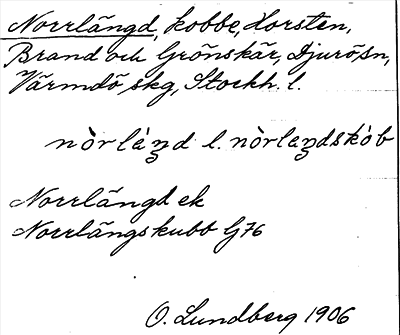 Norrlängd, kobbe, Horsten,
Brand och Grönskär, Djurö sn,
Värmdö skg, Stockh. l.
nòrländ l. nòrlandskòb
Norrlängd ek
Norrlängskubb G76
O. Lundberg 1906